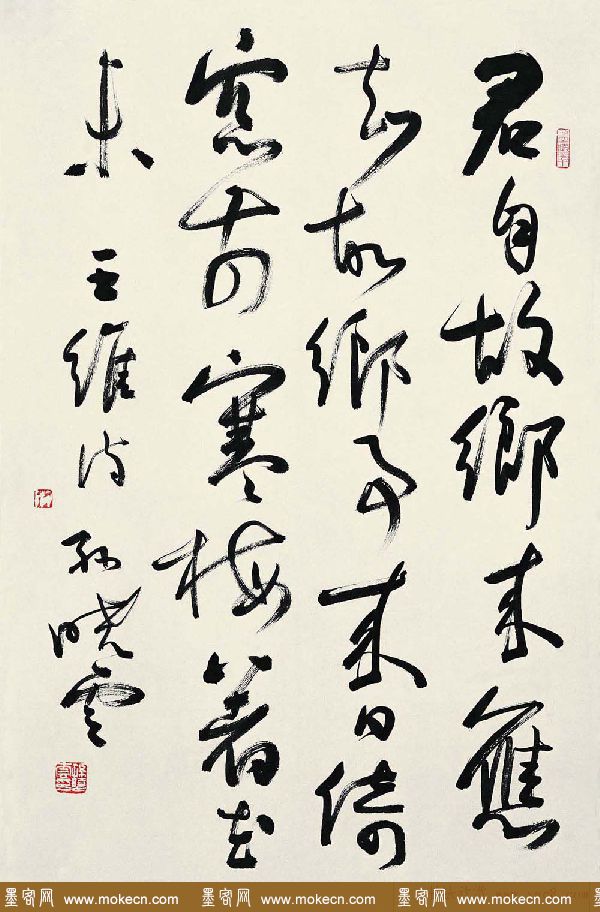 君自故鄉来應
知故鄉事来日倚
窓前寒梅著花
未 王維诗 孫曉雲
墨客网 www.mokecn.com 墨客网 www.mokecn.com 墨客网 www.mokecn.com